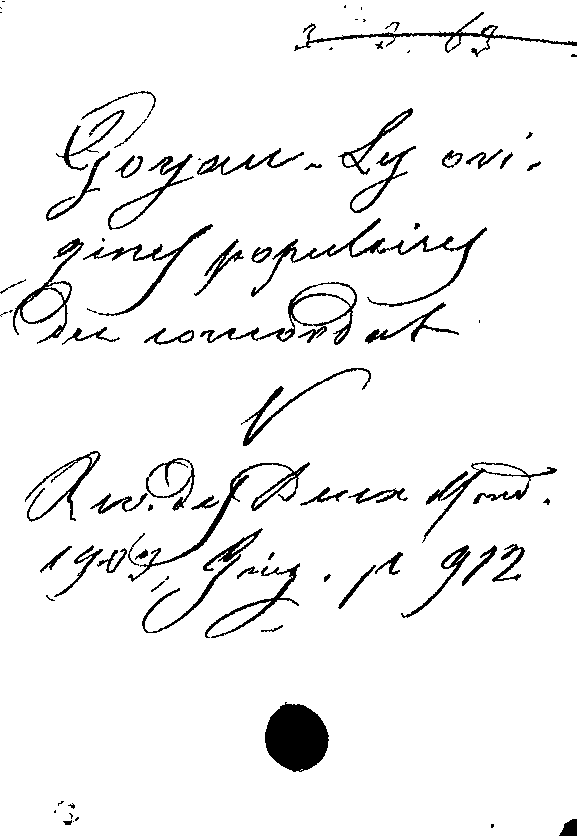 3. 3. 63
Goyau - Les ori-
gines populaires
du concordat
V
Rev. des Deux Mond.
1903, Juin. p 912